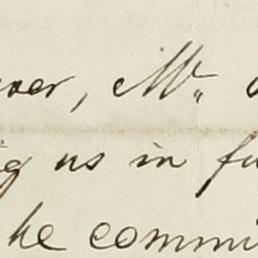 ever, Mr.
us in fu
he commi